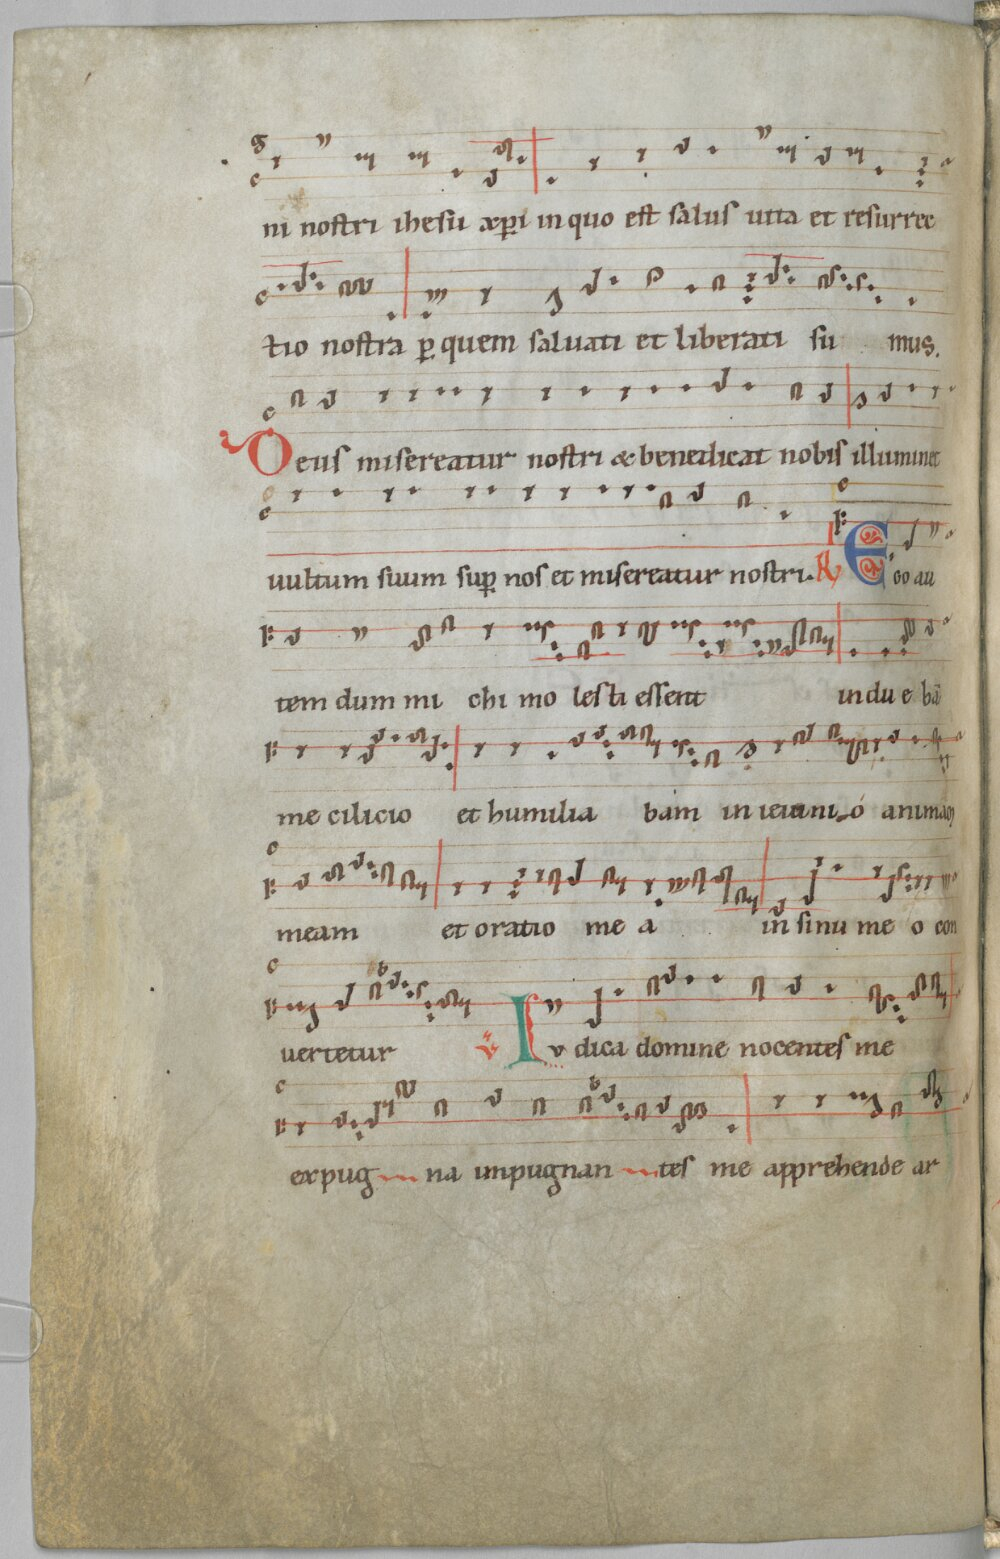 ni nostri ihesu xp̄i in quo est salus uita et resurrec
tio nostra ꝑ quem saluati et liberati su mus.
Deus misereatur nostri & benedicat nobis illuminet
uultum suum sup̄ nos et misereatur nostri. R Ego au
tem dum mi chi mo lesti essent indu e bā
me cilicio et humilia bam in ieiuni o animam
meam et oratio me a in sinu me o con
uertetur V Iudica domine nocentes me
expug na inpugnan tes me apprehende ar